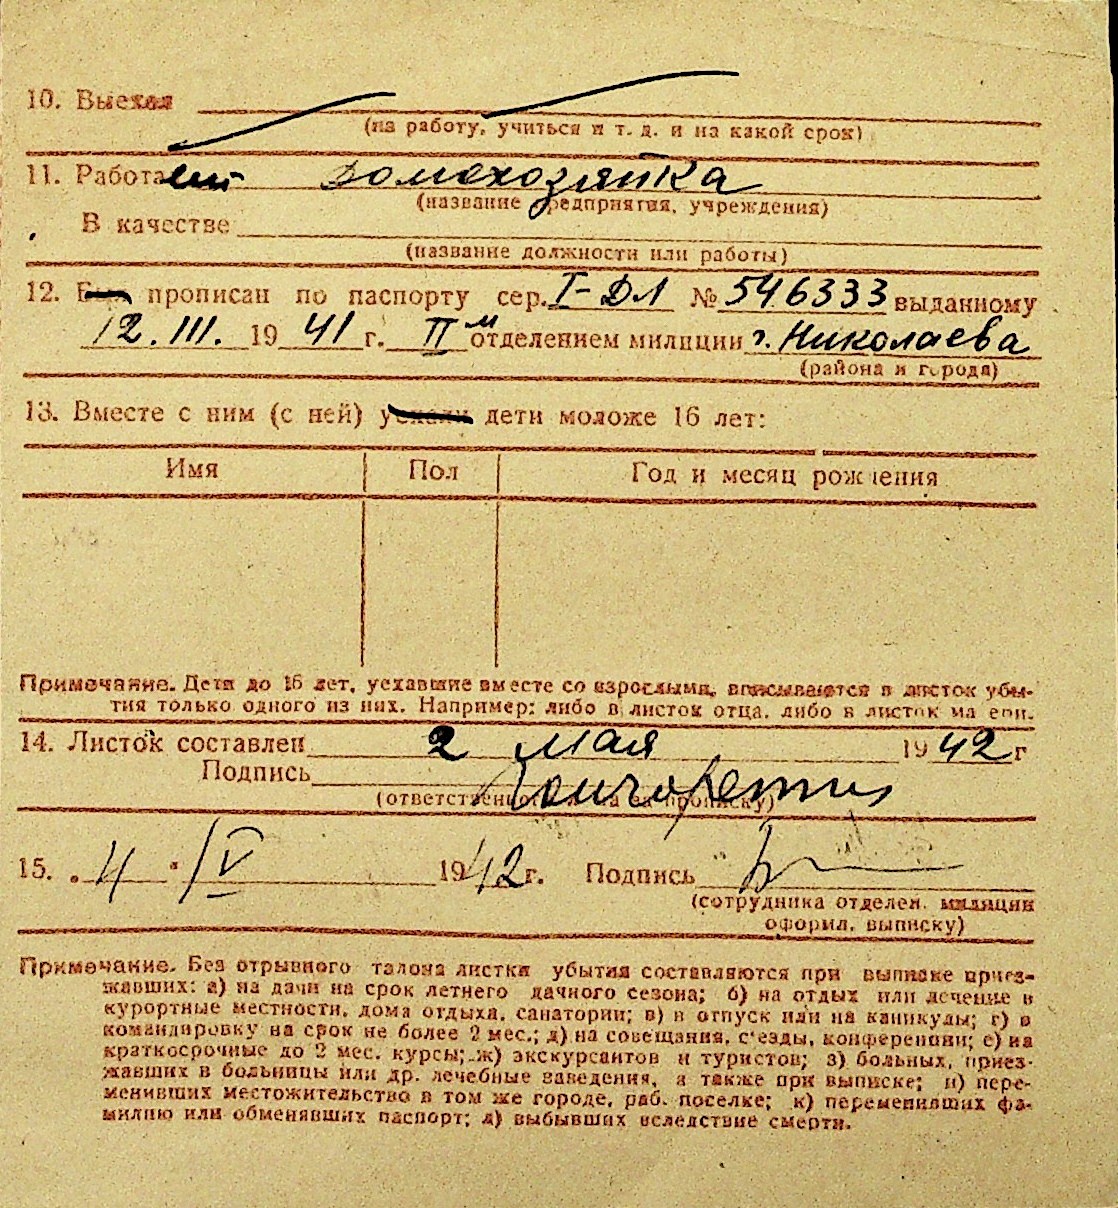 10. Выехал
(на работу, учиться и т. д. и на какой срок)
11. Работает домохозяйка
(название предприятия, учреждения)
В качестве
(название должности или работы)
12. Был прописан по паспорту сер. I-ДЛ № 546333 выданному
12. III. 1941 г. IIм отделением милиции г. Николаева
(района и города)
13. Вместе с ним (с ней) уехали дети моложе 16 лет:
Имя Пол Год и месяц рождения
Примечание. Дети до 16 лет, уехавшие вместе со взрослыми, вписываются в листок убы-
тия только одного из них. Например: либо в листок отца, либо в листок ма ери.
14. Листок составлен 2 мая 1942 г
Подпись
(ответственного лица за прописку)
15. „4“ IV 1942 г. Подпись
(сотрудника отделен. милиции
оформл. выписку)
Примечание. Без отрывного талона листки убытия составляются при выписке приез-
жавших: а) на дачи на срок летнего дачного сезона; б) на отдых или лечение в
курортные местности, дома отдыха, санатории; в) в отпуск или на каникулы; г) в
командировку на срок не более 2 мес.; д) на совещания, с'езды, конференции; е) на
краткосрочные до 2 мес. курсы; ж) экскурсантов и туристов; з) больных, приез-
жавших в больницы или др. лечебные заведения, а также при выписке; и) пере-
менивших местожительство в том же городе, раб. поселке; к) переменивших фа-
милию или обменявших паспорт; л) выбывших вследствие смерти.